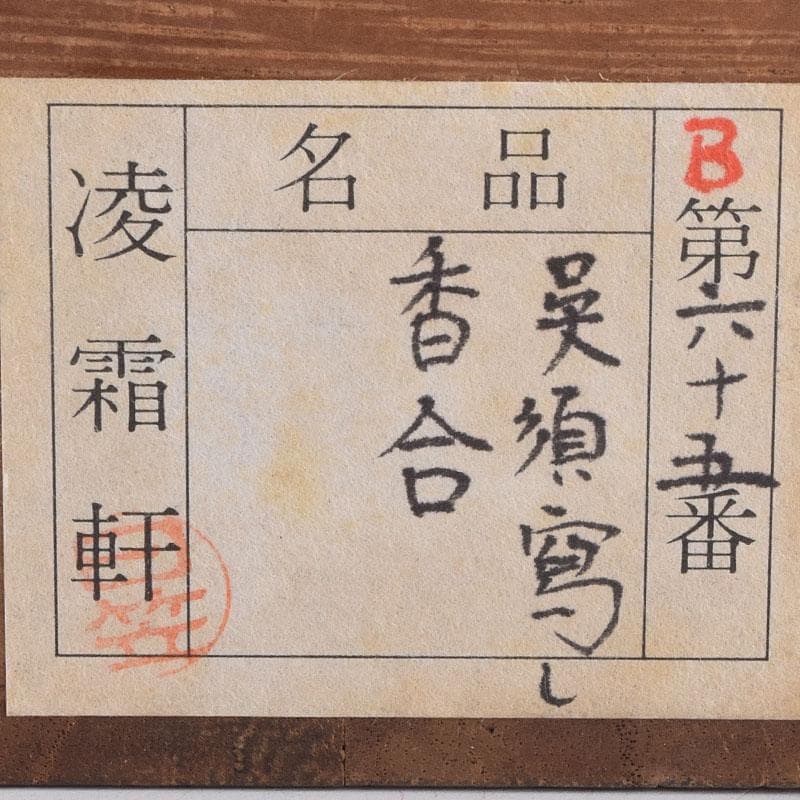 B
第六十五番
品名
呉須寫し
香合
凌霜軒